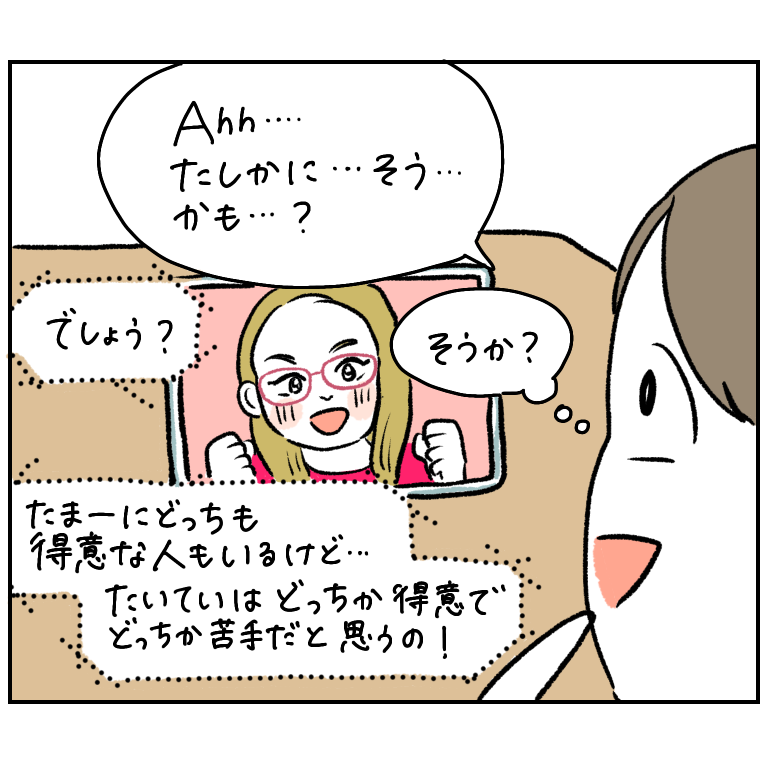 Ahh‥‥
たしかに…そう…
かも…？
でしょう？
そうか？
たまーにどっちも
得意な人もいるけど…
たいていは どっちか 得意で
どっちか苦手だと 思うの！